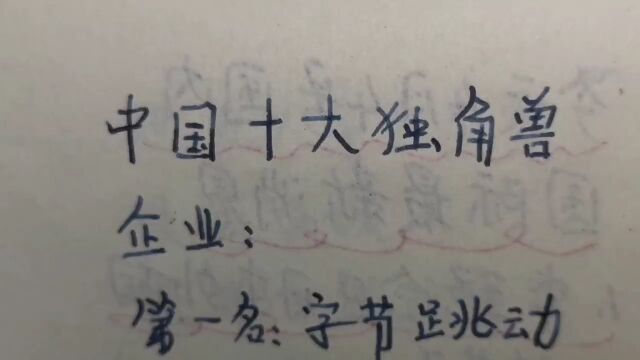 中国十大独角兽
企业:
第一名:字节跳动